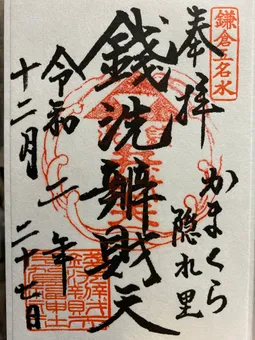 鎌倉五名水
奉拝
かまくら
隠れ里
銭洗辨財天
令和二年
十二月二十七日